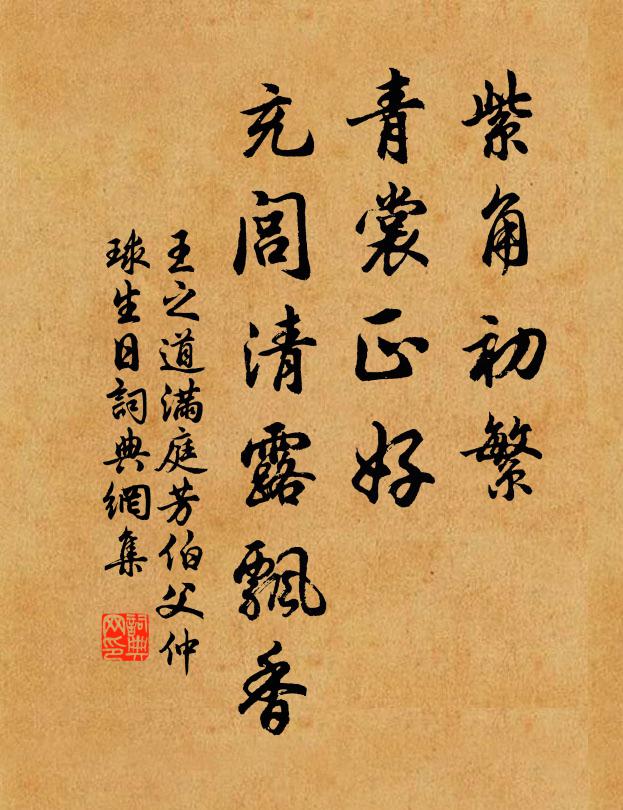 紫角初繁
青裳正好
充闾清露飄香
王之道满庭芳伯父仲
球生日詞典網集
詞典
网印